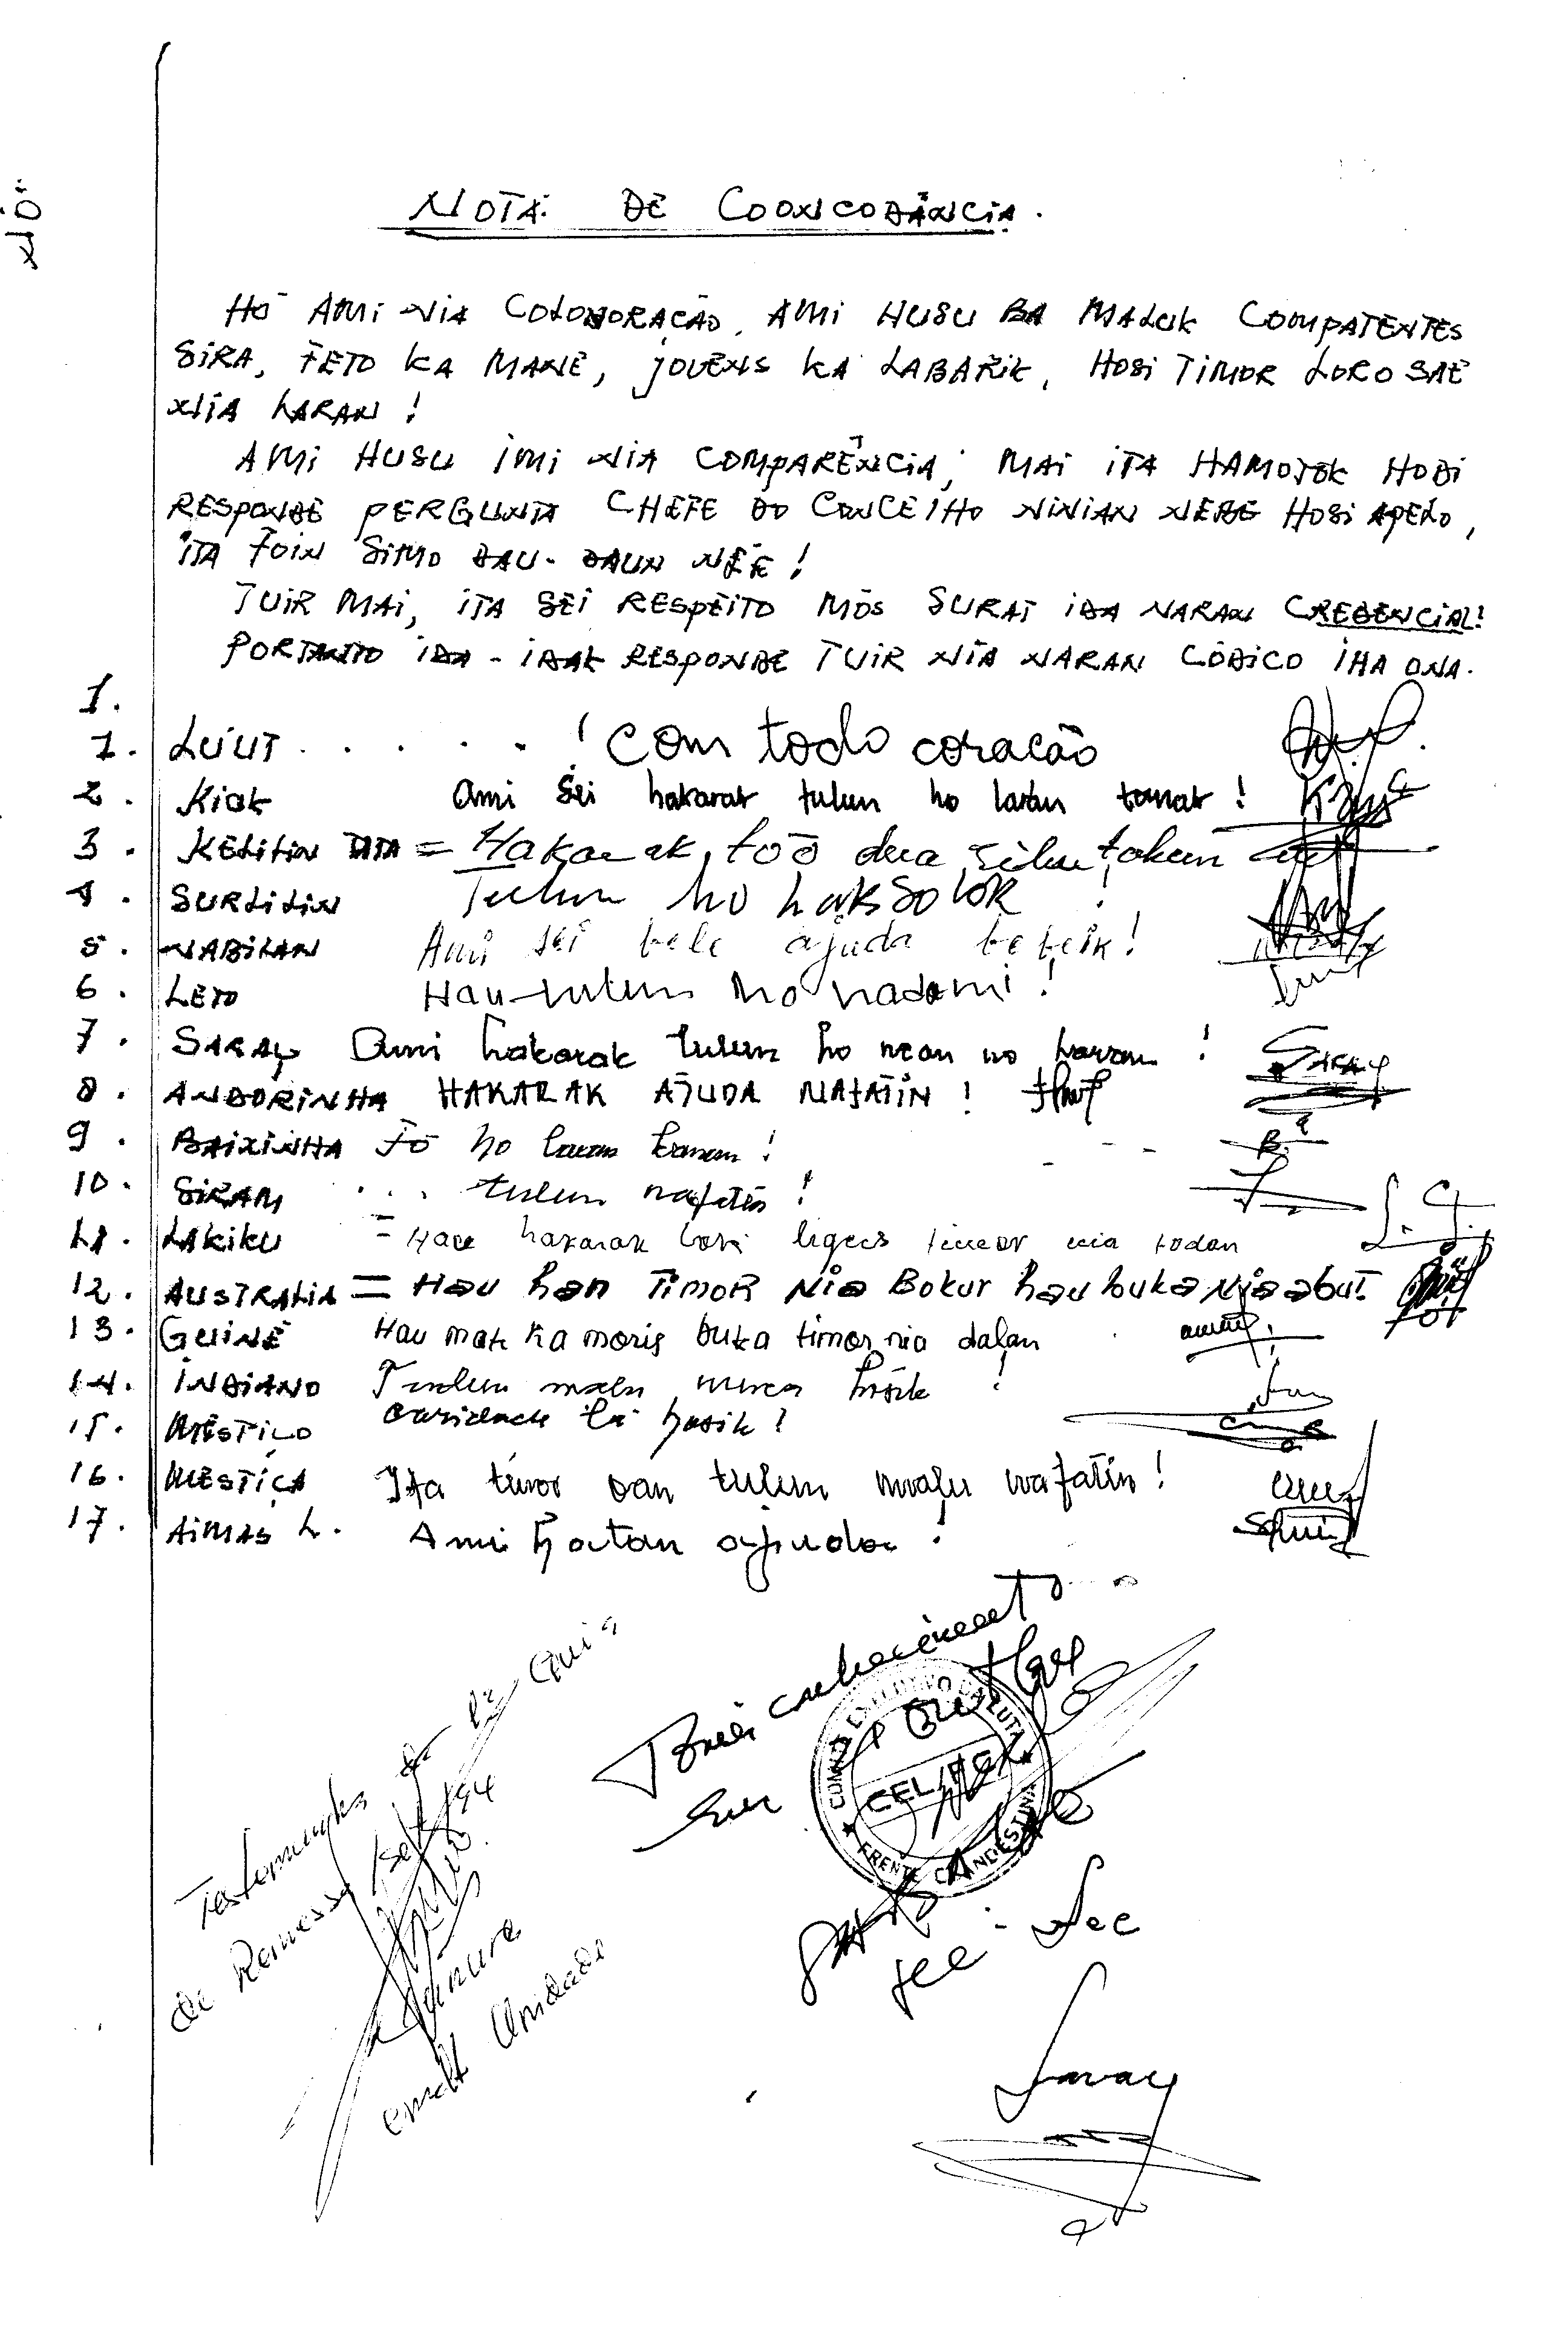 NOTA. DE COONCODÂNCIA.
HO AMI NIA COLOMORAÇÃO, AMI HUSU BA MALUK COMPATENTES
SIRA, FETO KA MANE, JOVENS KA LABARIK, HOSI TIMOR LORO SAE
NIA LARAN!
AMI HUSU IMI NIA COMPARÊNCIA, MAI ITA HAMOTOK HODI
RESPONDE PERGUNTA CHEFE DO CONCEIHO NINIAN NEBE HOSI APELO,
ITA FOIN SIMO DAU-DAUN NEE!
TUIR MAI, ITA SEI RESPEITO MÓS SURAT IDA NARAN CREDENCIAL!
PORTANTO IDA-IDAK RESPONDE TUIR NIA NARAN CÓDICO IHA ONA.
1.
1. LUIUT . . . . . ! Com todo coracão
2. Kiak Ami sei hakarak tulun ho laran tomak!
3. KELILIN = Hakarak, too
4. SURLILIN Tulun ho haksolok!
5. NABILAN Ami sei bele ajuda bebeik!
6. LETO Hau tulun ho hadomi!
7. SARAY Ami hakarak tulun ho nean no laran! Saray
8. ANDORINHA HAKARAK AJUDA NAFATIN!
9. BAIXINHA Fó ho laran tomak!
10. SIRAM . . . tulun nafatin!
11. LAKIKU = Hau hakarak timor nia todan
12. AUSTRALIA = Hau han TIMOR Nia Bokur hau buka Nia abut.
13. GUINÉ Hau mate ka moris buka timor nia dalan
14. INDIANO Tulun malu nunca hósik!
15. MESTIÇO la hosik!
16. MESTIÇA Ita timor oan tulun malu nafatin!
17. AIMAS L. Ami hatan ajuda!
Tomei conhecimento
COMITÉ EXECUTIVO DA LUTA
CEL/FC
FRENTE CLANDESTINA
de Remessa
Unidade
Saray